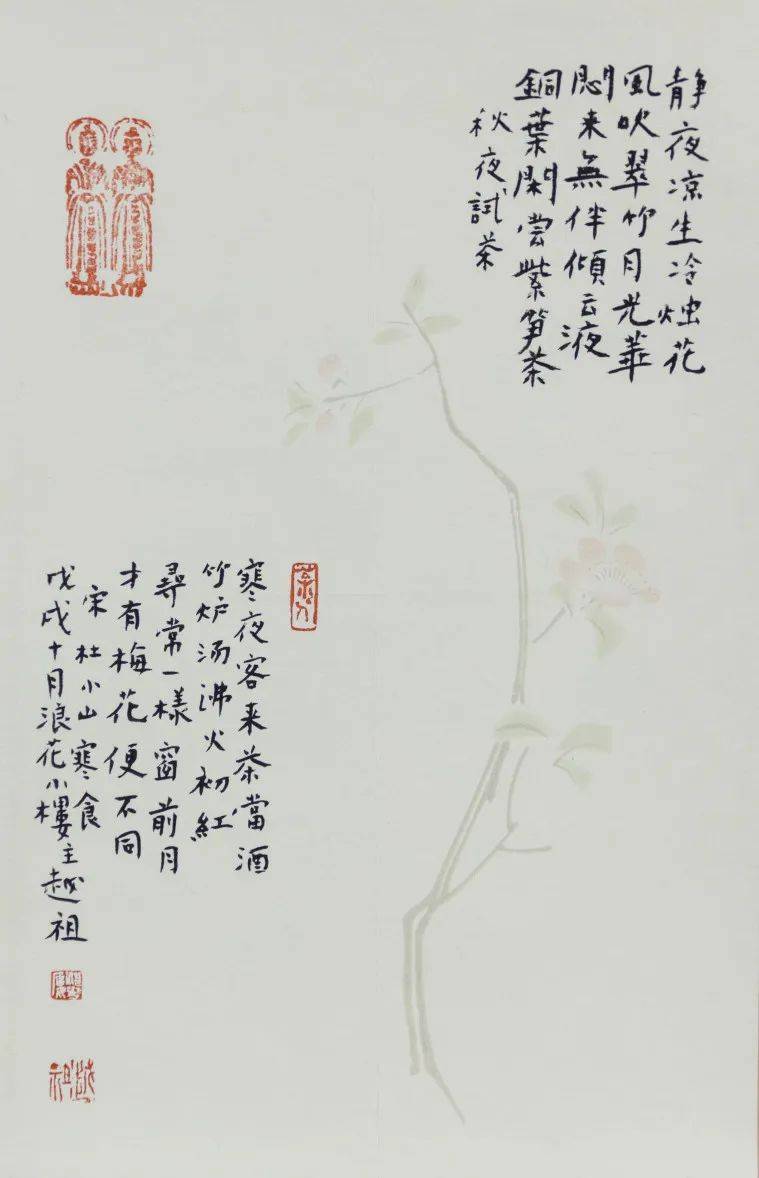 静夜凉生冷烛花
風吹翠竹月光華
悶来無伴傾云液
銅葉閑尝紫笋茶
秋夜試茶
茶人
寒夜客来茶當酒
竹炉汤沸火初紅
尋常一樣窗前月
才有梅花便不同
宋杜小山寒食
戊戌十月浪花小樓主越祖
越祖